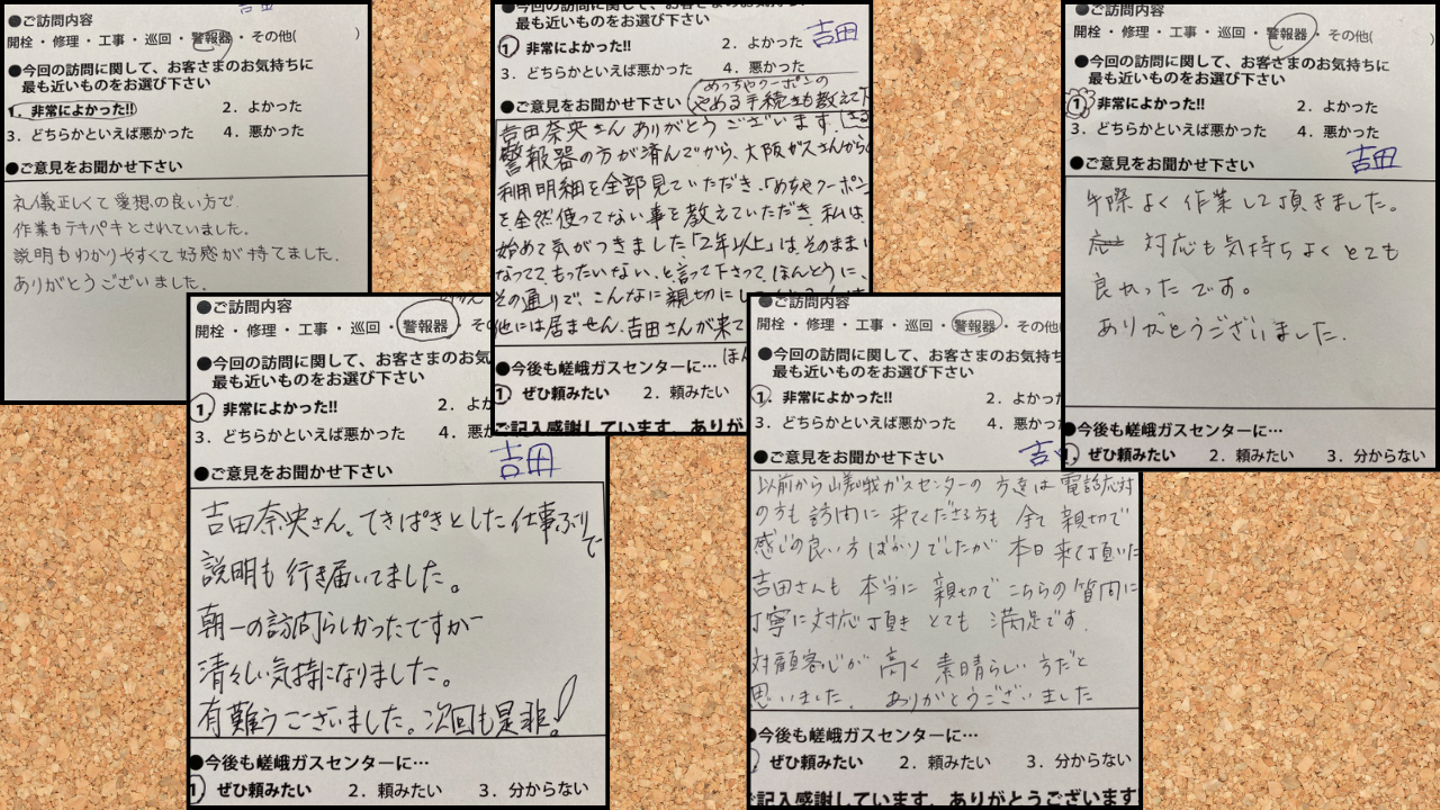 ●ご訪問内容
開栓 ・ 修理 ・ 工事 ・ 巡回 ・ 警報器 ・ その他( )
●今回の訪問に関して、お客さまのお気持ちに
最も近いものをお選び下さい
1. 非常によかった!! 2. よかった
3. どちらかといえば悪かった 4. 悪かった
●ご意見をお聞かせ下さい
礼儀正しくて愛想の良い方で
作業もテキパキとされていました。
説明もわかりやすくて好感が持てました.
ありがとうございました.
●ご訪問内容
開栓 ・ 修理 ・ 工事 ・ 巡回 ・ 警報器 ・ そ
●今回の訪問に関して、お客さまのお気
最も近いものをお選び下さい
1. 非常によかった!! 2. よか
3. どちらかといえば悪かった 4. 悪
吉田
●ご意見をお聞かせ下さい
吉田奈央さん。てきぱきとした仕事ぶりで
説明も行き届いてました。
朝一の訪問らしかったですが
清々しい気持になりました。
有難うございました。次回も是非!
●今後も嵯峨ガスセンターに…
1 ぜひ頼みたい 2. 頼みたい 3. 分からない
●今回の訪問に関して、お客さまのお気持ち
最も近いものをお選び下さい
吉田
1 非常によかった!! 2. よかった
3. どちらかといえば悪かった 4. 悪かった
めっちゃクーポンの
●ご意見をお聞かせ下さい やめる手続きも教えて下
吉田奈央さんありがとうございます.
警報器の方が済んでから、大阪ガスさんから
利用明細を全部見ていただき.「めちゃクーポン
を全然使ってない事を教えていただき 私は、
始めて気がつきました「2年以上」は、そのまま
なってて もったいない、と言って下さって、ほんとうに、
その通りで、こんなに親切にし
他には居ません.吉田さんが来て
ほん
●今後も嵯峨ガスセンターに…
1 ぜひ頼みたい 2. 頼みたい
ご記入感謝しています。ありが
●ご訪問内容
開栓 ・ 修理 ・ 工事 ・ 巡回 ・ 警報器 ・ その他(
●今回の訪問に関して、お客さまのお気持ち
最も近いものをお選び下さい
1. 非常によかった!! 2. よかっ
3. どちらかといえば悪かった 4. 悪かっ
●ご意見をお聞かせ下さい
以前から嵯峨ガスセンターの方達は電話応対
の方も訪問に来てくださる方も全て親切で
感じの良い方ばかりでしたが 本日来て頂いた
吉田さんも 本当に 親切で こちらの質問に
丁寧に対応頂き とても 満足です.
対顧客心が 高く 素晴らしい 方だと
思いました. ありがとうございました
●今後も嵯峨ガスセンターに…
ぜひ頼みたい 2. 頼みたい 3. 分からない
記入感謝しています。ありがとうございます
●ご訪問内容
開栓 ・ 修理 ・ 工事 ・ 巡回 ・ 警報器 ・ その他( )
●今回の訪問に関して、お客さまのお気持ちに
最も近いものをお選び下さい
1 非常によかった!! 2. よかった
3. どちらかといえば悪かった 4. 悪かった
●ご意見をお聞かせ下さい 吉田
手際よく作業して頂きました。
対応も気持ちよくとても
良かったです。
ありがとうございました.
●今後も嵯峨ガスセンターに…
1. ぜひ頼みたい 2. 頼みたい 3. 分からない